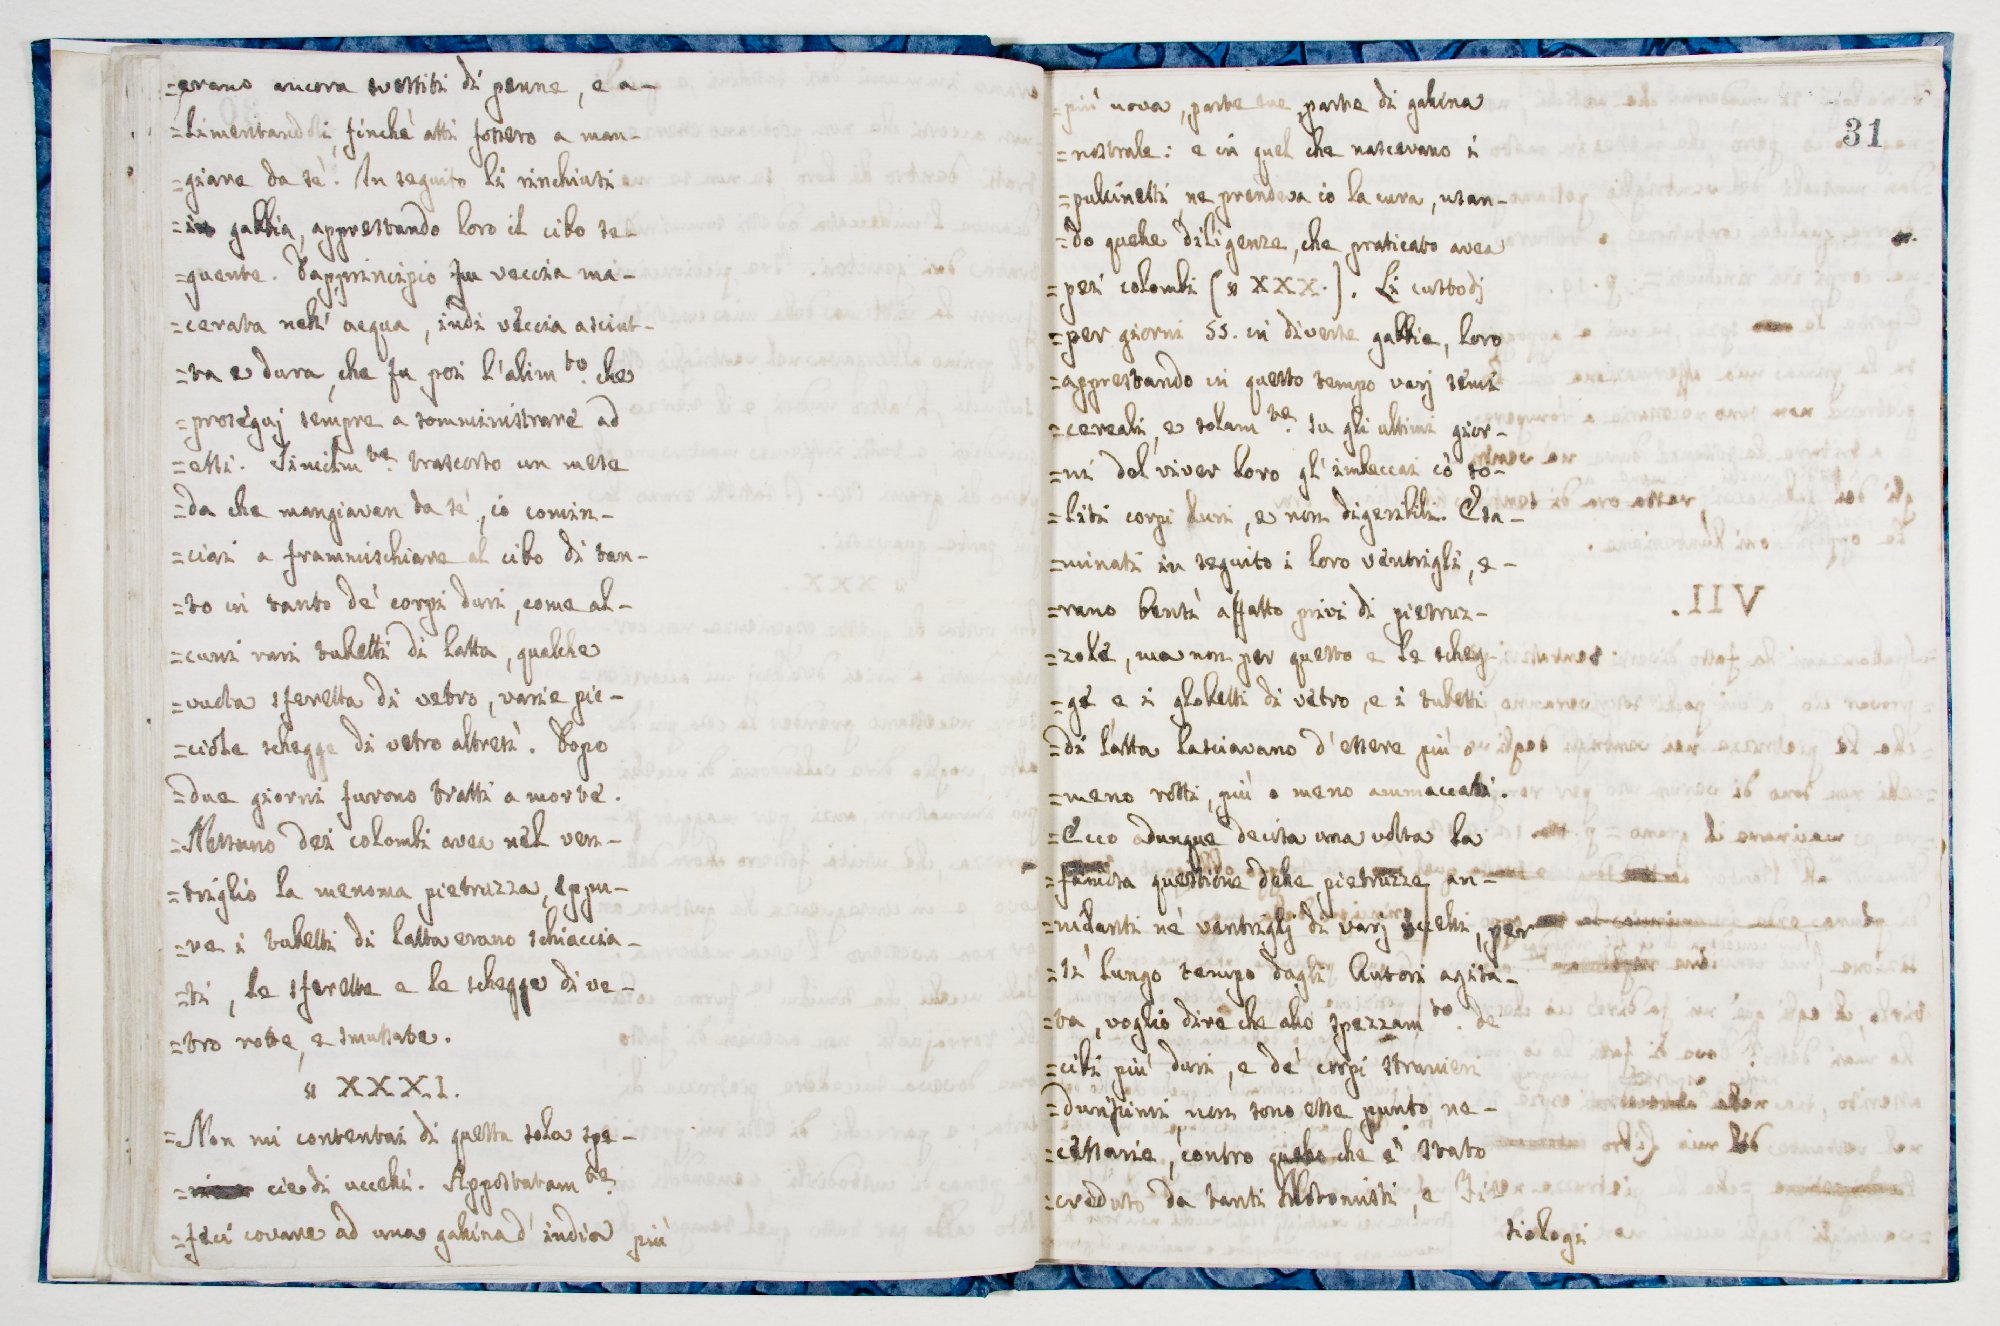 =erano ancora svestiti di penne, e a-
=limentandoli, finchè atti fossero a man-
=giare da sè. In seguito li rinchiusi
=in gabbia, apprestando loro il cibo se-
=guente. Dapprincipio fu veccia ma-
=cerata nell' acqua, indi veccia asciut-
=ta e dura, che fu poi l'alim.to che
=proseguj sempre a somministrare ad
=essi. Finalm.te trascorso un mese
=da che mangiavan da sè, io comin-
=ciai a frammischiare al cibo di tan-
=to in tanto de' corpi duri, come al-
=cuni vani tubetti di latta, qualche
=vuota sferetta di vetro, varie pic-
=ciole schegge di vetro altresì. Dopo
=due giorni furono tratti a morte.
=Nessuno dei colombi avea nel ven-
=triglio la menoma pietruzza, eppu-
=re i tubetti di latta erano schiaccia-
=ti, le sferette e le schegge di ve-
=tro rotte, e smussate.
§ XXXI.
=Non mi contentai di questa sola spe-
= cie di uccelli. Appostatam.te
=feci covare ad una gallina d'india più
=più uova, parte sue, parte di gallina
=nostrale: e in quel che nascevano i
=pulcinetti ne prendeva io la cura, usan-
=do quelle diligenze, che praticato avea
=pei colombi (§ XXX.). Li custodj
=per giorni 55. in diverse gabbie, loro
=apprestando in questo tempo varj semi
=cereali, e solam.te su gli ultimi gior-
=ni del viver loro gl' imbeccai co' so-
=liti corpi duri, e non digeribili. Esa-
=minati in seguito i loro ventrigli, e-
=rano bensì affatto privi di pietruz-
=zole, ma non per questo e le scheg-
=ge e i globetti di vetro, e i tubetti
=di latta lasciavano d'essere più o
=meno rotti, più o meno ammaccati.
=Ecco adunque decisa una volta la
=famosa questione delle pietruzze an-
=nidanti nè ventriglj di varj uccelli, per
=sì lungo tempo dagli Autori agita-
=ta, voglio dire che allo spezzam.to de
=cibi più duri, e de' corpi stranieri
=durissimi non sono esse punto ne-
=cessarie, contro quello che è stato
=creduto da tanti Notomisti, e Fi-
siologi
31